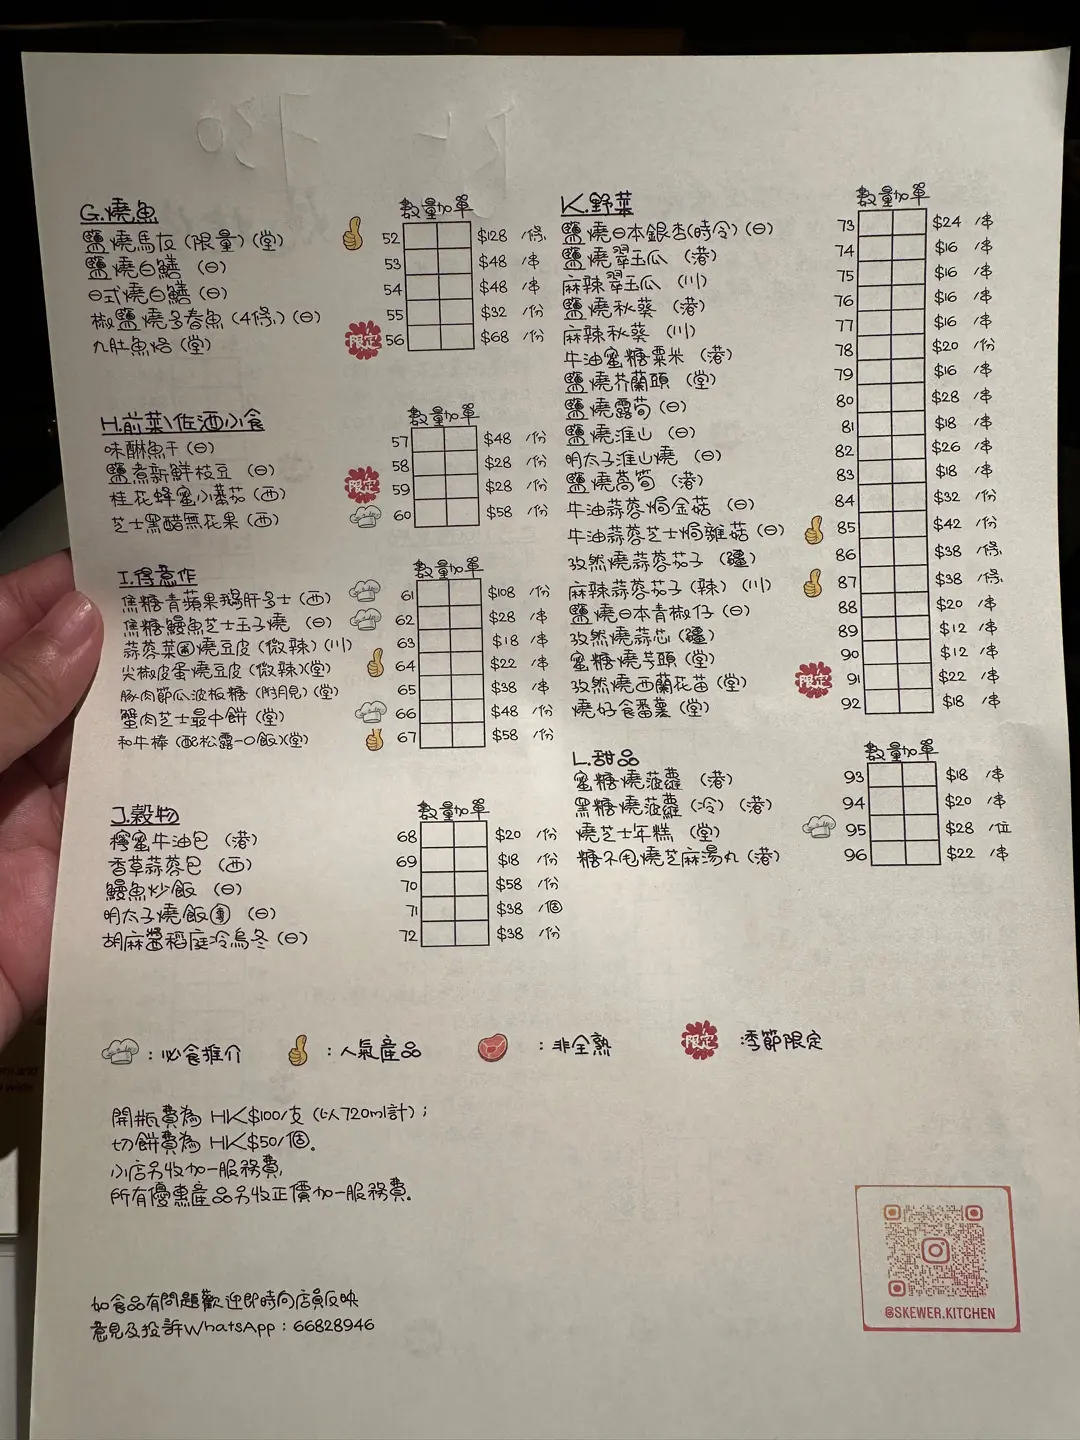 G.燒魚 數量加單
鹽燒馬友 (限量) (堂) 52 $128 /條
鹽燒白鱔 (日) 53 $48 /串
日式燒白鱔 (日) 54 $48 /串
椒鹽燒多春魚 (4條) (日) 55 $32 /份
九肚魚烙 (堂) 限定 56 $68 /份
H.前菜\佐酒小食 數量加單
味醂魚干 (日) 57 $48 /份
鹽煮新鮮枝豆 (日) 58 $28 /份
桂花蜂蜜小蕃茄 (西) 限定 59 $28 /份
芝士黑醋無花果 (西) 60 $58 /份
I.得意作 數量加單
焦糖青蘋果鵝肝多士 (西) 61 $108 /份
焦糖鰻魚芝士玉子燒 (日) 62 $28 /串
蒜蓉菜圃燒豆皮 (微辣) (川) 63 $18 /串
尖椒皮蛋燒豆皮 (微辣)(堂) 64 $22 /串
豚肉節瓜波板糖 (附月見) (堂) 65 $38 /串
蟹肉芝士最中餅 (堂) 66 $48 /份
和牛棒 (配松露一口飯)(堂) 67 $58 /份
J.穀物 數量加單
檸蜜牛油包 (港) 68 $20 /份
香草蒜蓉包 (西) 69 $18 /份
鰻魚炒飯 (日) 70 $58 /份
明太子燒飯團 (日) 71 $38 /個
胡麻醬稻庭冷烏冬 (日) 72 $38 /份
K.野菜 數量加單
鹽燒日本銀杏(時令) (日) 73 $24 /串
鹽燒翠玉瓜 (港) 74 $16 /串
麻辣翠玉瓜 (川) 75 $16 /串
鹽燒秋葵 (港) 76 $16 /串
麻辣秋葵 (川) 77 $16 /串
牛油蜜糖粟米 (港) 78 $20 /份
鹽燒芥蘭頭 (堂) 79 $16 /串
鹽燒露筍 (日) 80 $28 /串
鹽燒淮山 (日) 81 $18 /串
明太子淮山燒 (日) 82 $26 /串
鹽燒萵筍 (港) 83 $18 /串
牛油蒜蓉焗金菇 (日) 84 $32 /份
牛油蒜蓉芝士焗雜菇 (日) 85 $42 /份
孜然燒蒜蓉茄子 (疆) 86 $38 /條
麻辣蒜蓉茄子 (辣) (川) 87 $38 /條
鹽燒日本青椒仔 (日) 88 $20 /串
孜然燒蒜芯 (疆) 89 $12 /串
蜜糖燒芋頭 (堂) 90 $12 /串
孜然燒西蘭花苗 (堂) 限定 91 $22 /串
燒好食番薯 (堂) 92 $18 /串
L.甜品 數量加單
蜜糖燒菠蘿 (港) 93 $18 /串
黑糖燒菠蘿 (冷) (港) 94 $20 /串
燒芝士年糕 (堂) 95 $28 /位
糖不甩燒芝麻湯丸 (港) 96 $22 /串
:必食推介 :人氣產品 :非全熟 限定 :季節限定
開瓶費為 HK$100/支 (以720ml計) ;
切餅費為 HK$50/個。
小店另收加一服務費,
所有優惠產品另收正價加一服務費。
如食品有問題歡迎即時向店員反映
意見及投訴WhatsApp : 66828946
@SKEWER.KITCHEN